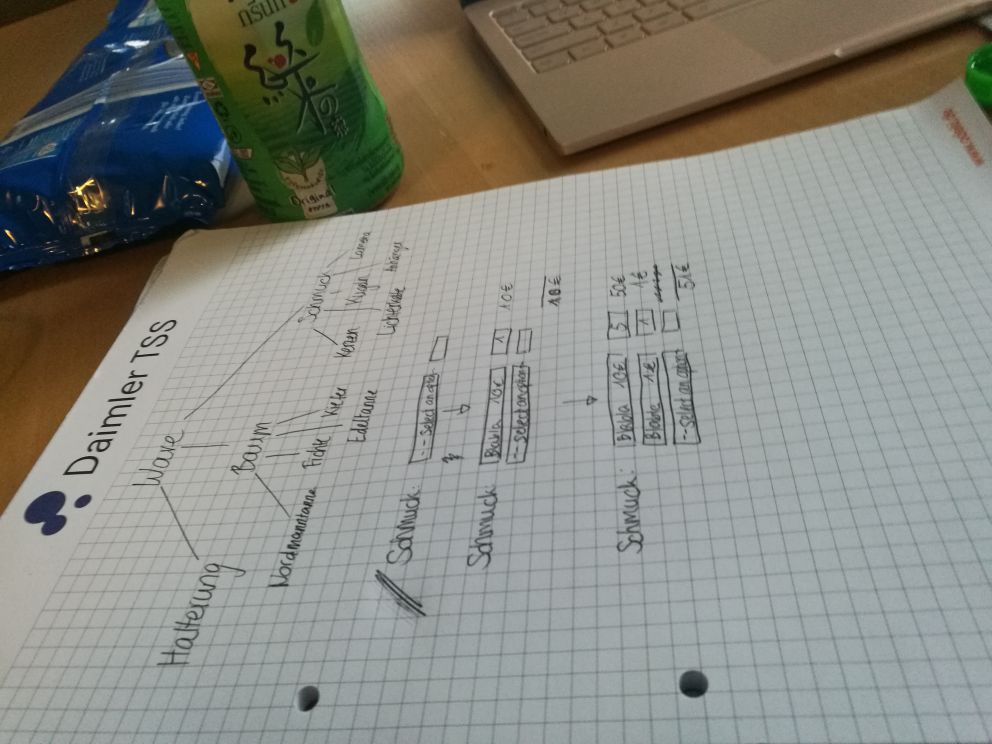 Daimler TSS
Ware
Halterung
Baum
Schmuck
Nordmanntanne
Fichte
Kiefer
Edeltanne
Kerzen
Kugeln
Lichterkette
Schmuck:
-- Select an option
Schmuck:
Blabla 10€
1
10€
-- Select an option
10€
Schmuck:
Blabla 10€
5
50€
Blabla 1€
1
1€
-- Select an option
51€
Original